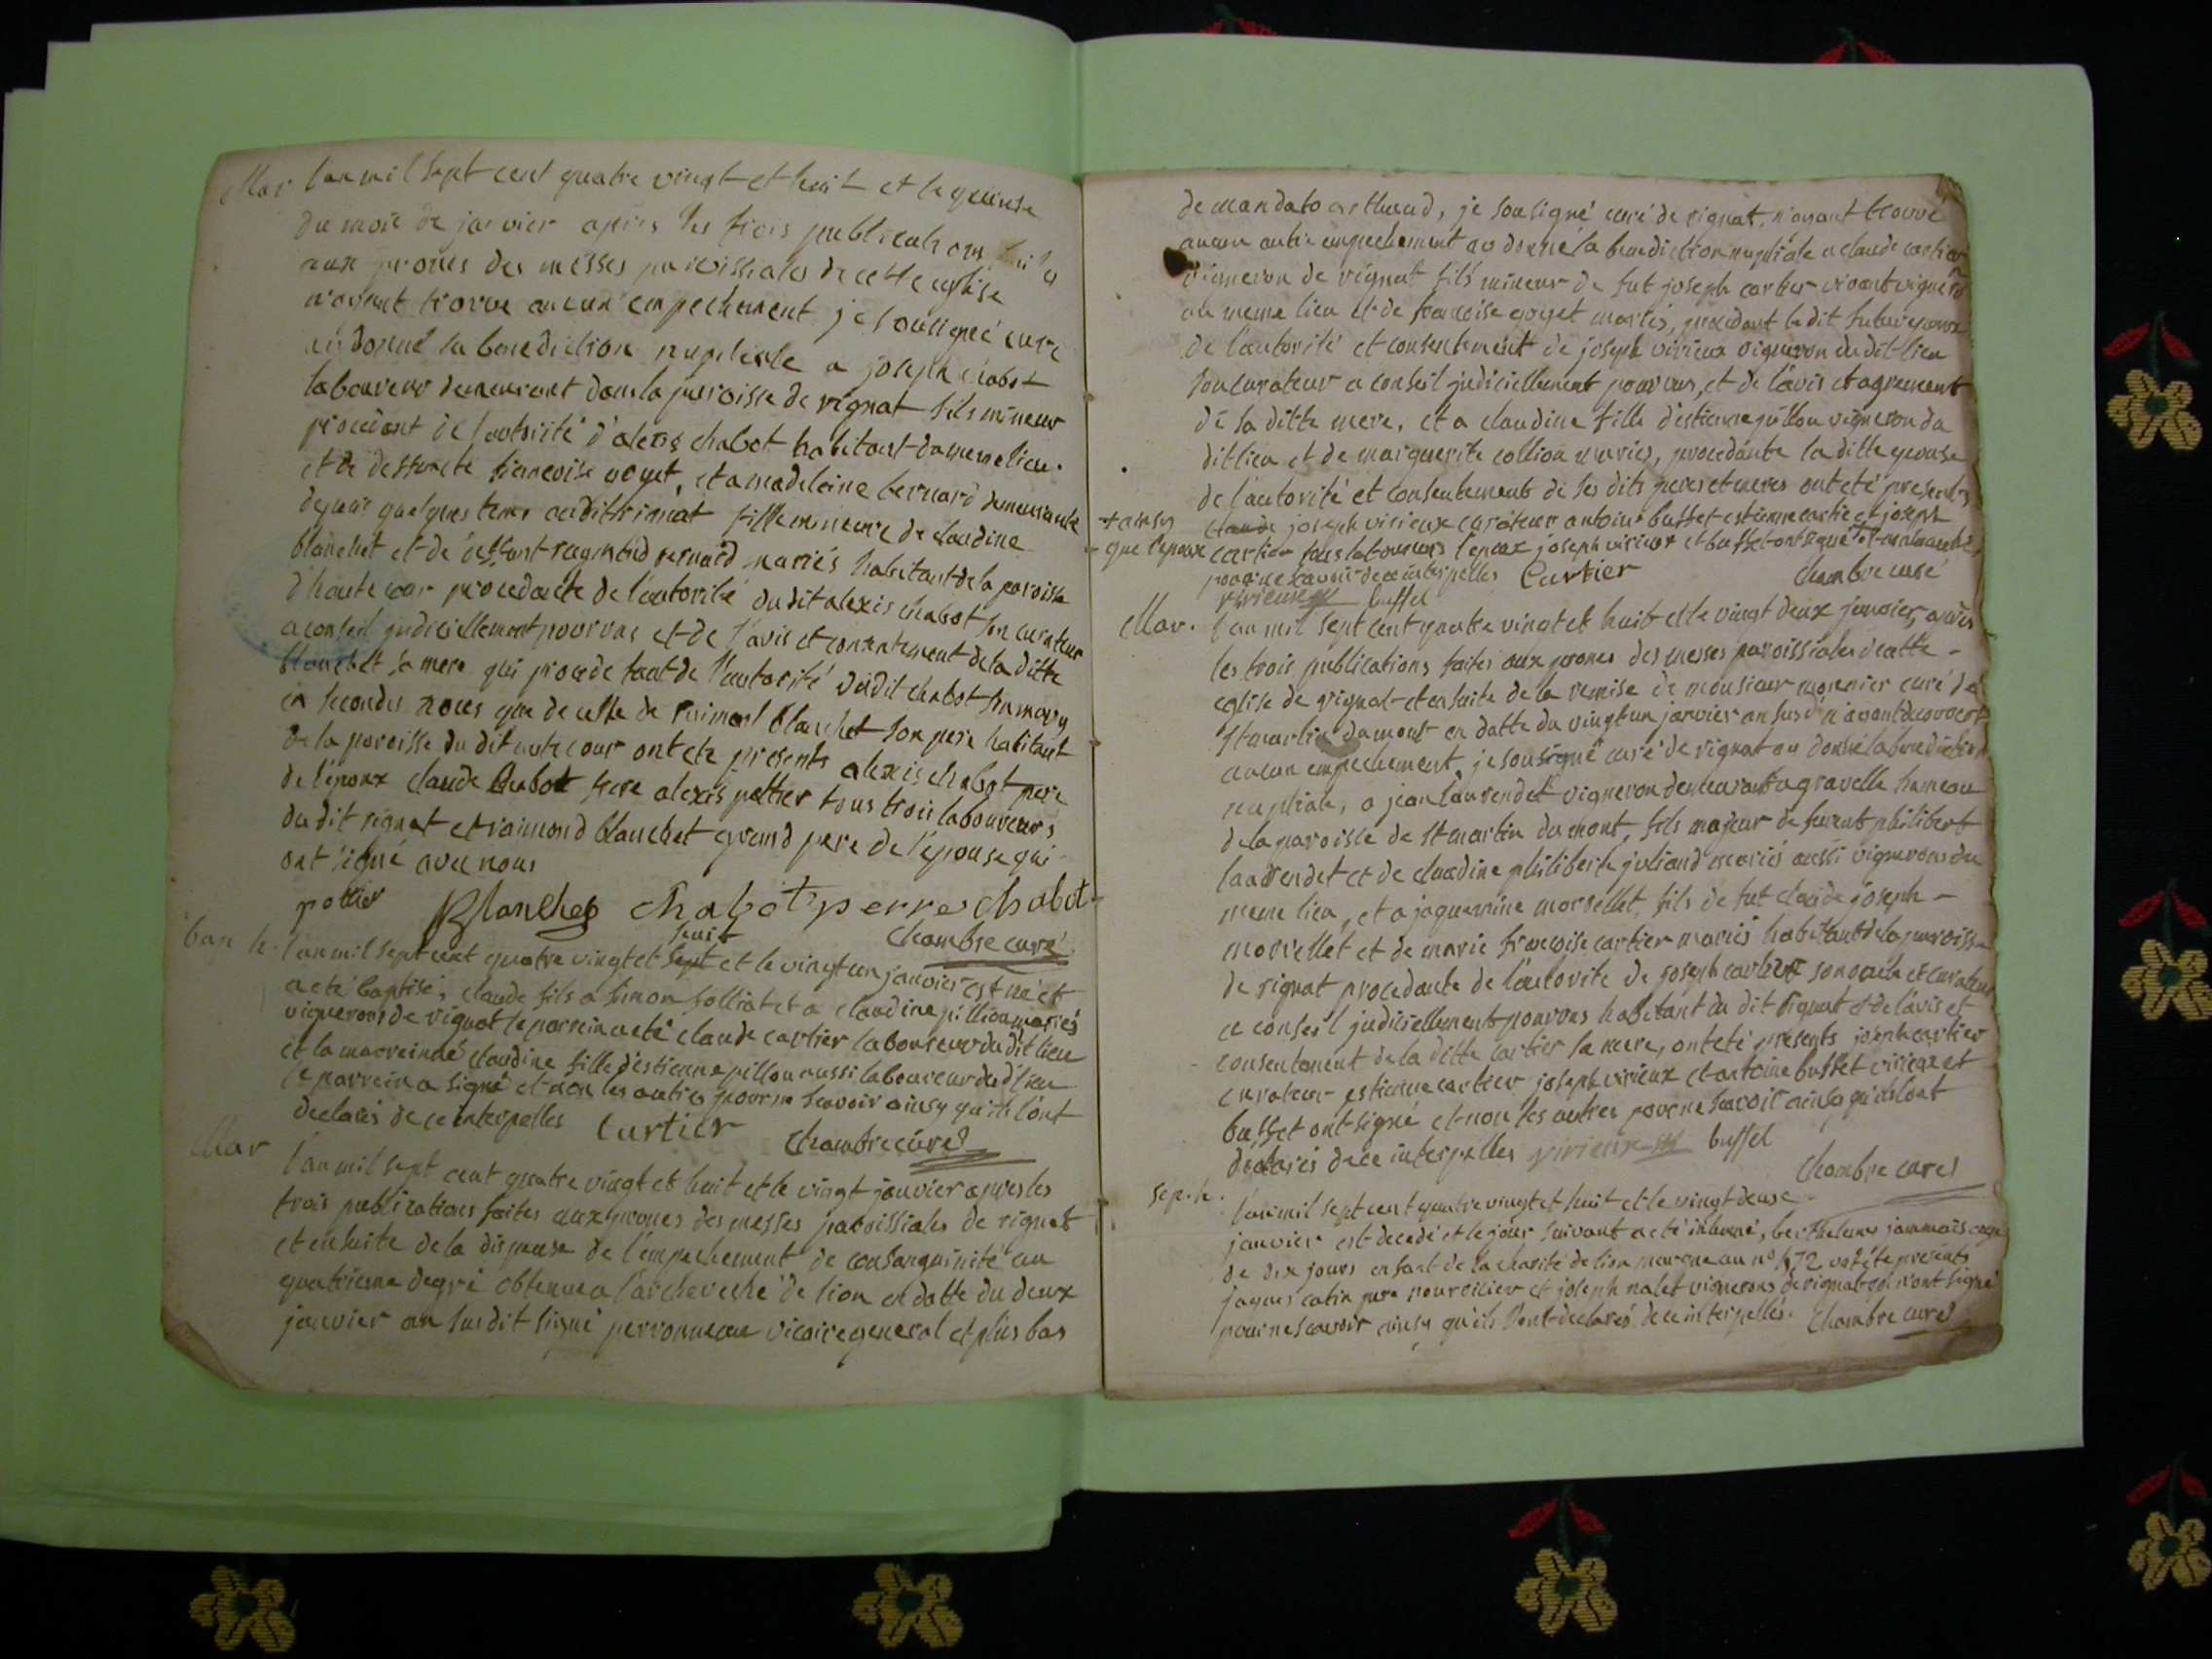 Mar l'an mil sept cent quatre vingt et huit et le quinse
du mois de janvier apres les trois publications faites
aux prones des messes paroissiales de cette eglise
n'ayant trouve aucun empechement je sousigné curé
ai donné la benediction nuptiale a joseph chabot
laboureur demeurant dans la paroisse de rignat fils mineur
procedant de l'autorité d'alexis chabot habitant du meme lieu
et de deffuncte francoise goyet, et a madeleine bernard demeurante
depuis quelques tems au dit rignat fille mineure de claudine
blanchet et de deffunt raymond bernard mariés habitant de la paroisse
d'haute cour procedante de l'autorité du dit alexis chabot son curateur
a conseil judiciellement pourvus et de l'avis et consentement de la ditte
blanchet sa mere qui procede tant de l'autorité du dit chabot son mary
en secondes noces que de celle de raimond blanchet son pere habitant
de la paroisse du dit haute cour ont ete presents alexis chabot pere
de l'epoux claude chabot frere alexis pottier tous trois laboureurs
du dit rignat et raimond blanchet grand pere de l'epouse qui
ont signé avec nous
pottier Blanchet chabot perre chabot
chambre curé
bap. h. l'an mil sept cent quatre vingt et sept huit et le vingt un janvier est né et
a eté baptisé, claude fils a simon folliat et a claudine pillion mariés
vignerons de rignat le parrein a eté claude cartier laboureur du dit lieu
et la marreinne claudine fille d'estienne pillon aussi laboureur du d. lieu
le parrein a signé et non les autres pour ne scavoir ainsy qu'ils l'ont
declarés de ce interpelles Cartier chambre curé
Mar l'an mil sept cent quatre vingt et huit et le vingt janvier apres les
trois publications faites aux prones des messes paroissiales de rignat
et ensuite de la dispense de l'empechement de consanguinité au
quatrieme degré obtenue a l'archeveché de lion en datte du deux
janvier an susdit signé perronneau vicaire general et plus bas
de mandato arthaud, je sousigné curé de rignat, n'ayant trouvé
aucun autre empechement ai donné la benediction nuptiale a claude cartier
vigneron de rignat fils mineur de fut joseph cartier vivant vigneron
au meme lieu et de francoise goyet mariés, procedant le dit futur epoux
de l'autorité et consentement de joseph virieux vigneron du dit lieu
son curateur a conseil judiciellement pourvus, et de l'avis et agrement
de sa ditte mere, et a claudine fille d'estienne pillon vigneron du
dit lieu et de marguerite collion mariés, procedante la ditte epouse
de l'autorité et consentement de ses dits peres et meres ont eté presents
claude joseph virieux curateur antoine buffet estienne cartier et joseph
+ ainsy
que l'epoux cartier tous laboureurs l'epoux joseph virieux et buffet ont signé + et non les autres
pour ne scavoir de ce interpelles Cartier chambre curé
virieux buffet
Mar. l'an mil sept cent quatre vingt et huit et le vingt deux janvier, apres
les trois publications faites aux prones des messes paroissiales de cette
eglise de rignat et ensuite de la remise de monsieur monnier curé de
st martin du mont en datte du vingt un janvier an susd. n'ayant decouvert
aucun empechement, je sousigné curé de rignat ai donné la benediction
nuptiale, a jean laurendet vigneron demeurant a gravelle hameau
de la paroisse de st martin du mont, fils majeur de furent philibert
laurendet et de claudine philiberte juliand mariés aussi vignerons du
meme lieu, et a jaquemine morellet, fils de fut claude joseph
morellet et de marie francoise cartier mariés habitant de la paroisse
de rignat procedante de l'autorité de joseph cartier son oncle et curateur
a conseil judiciellement pourvus habitant du dit rignat et de l'avis et
consentement de la ditte cartier sa mere, ont eté presents joseph cartier
curateur estienne cartier joseph virieux et antoine buffet virieux et
buffet ont signé et non les autres pour ne scavoir ainsy qu'ils l'ont
declarés de ce interpelles virieux buffet
chambre curé
sep. h. l'an mil sept cent quatre vingt et huit et le vingt deuse
janvier est decedé et le jour suivant a eté inhumé, berthelemy jammais agé
de dix jours enfant de la charité de lion marque au n° 172 ont eté presents
jaques catin pere nourricier et joseph nalet vignerons de rignat qui n'ont signé
pour ne scavoir ainsy qu'ils l'ont declarés de ce interpellés. chambre curé